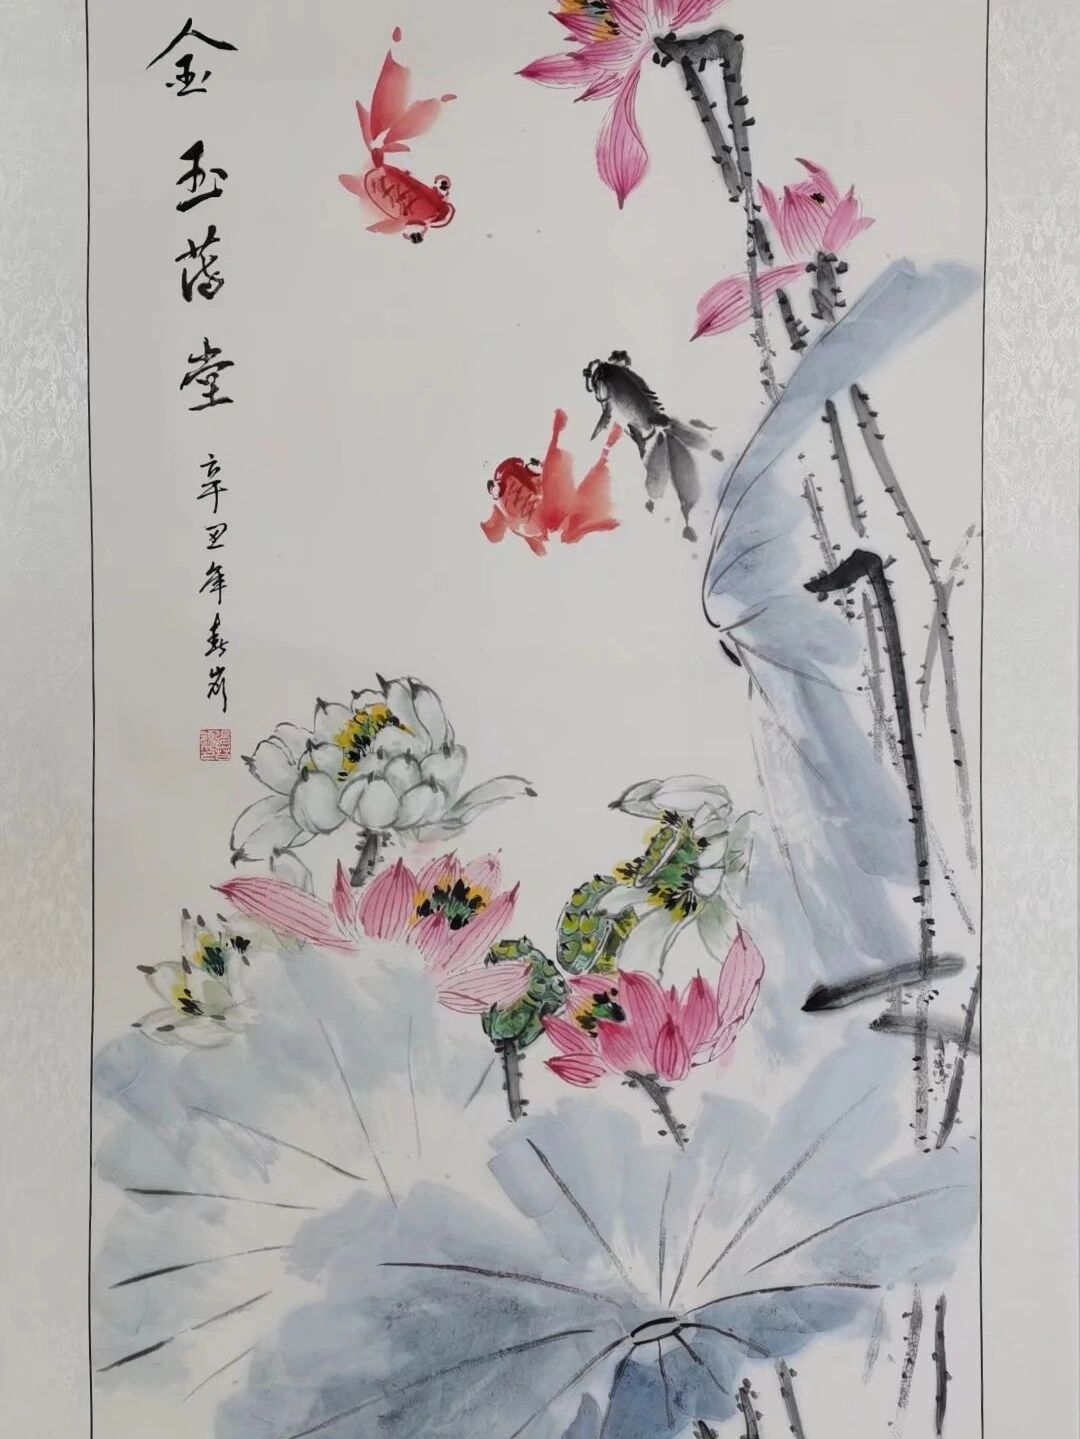 金玉满堂
辛丑年春岗